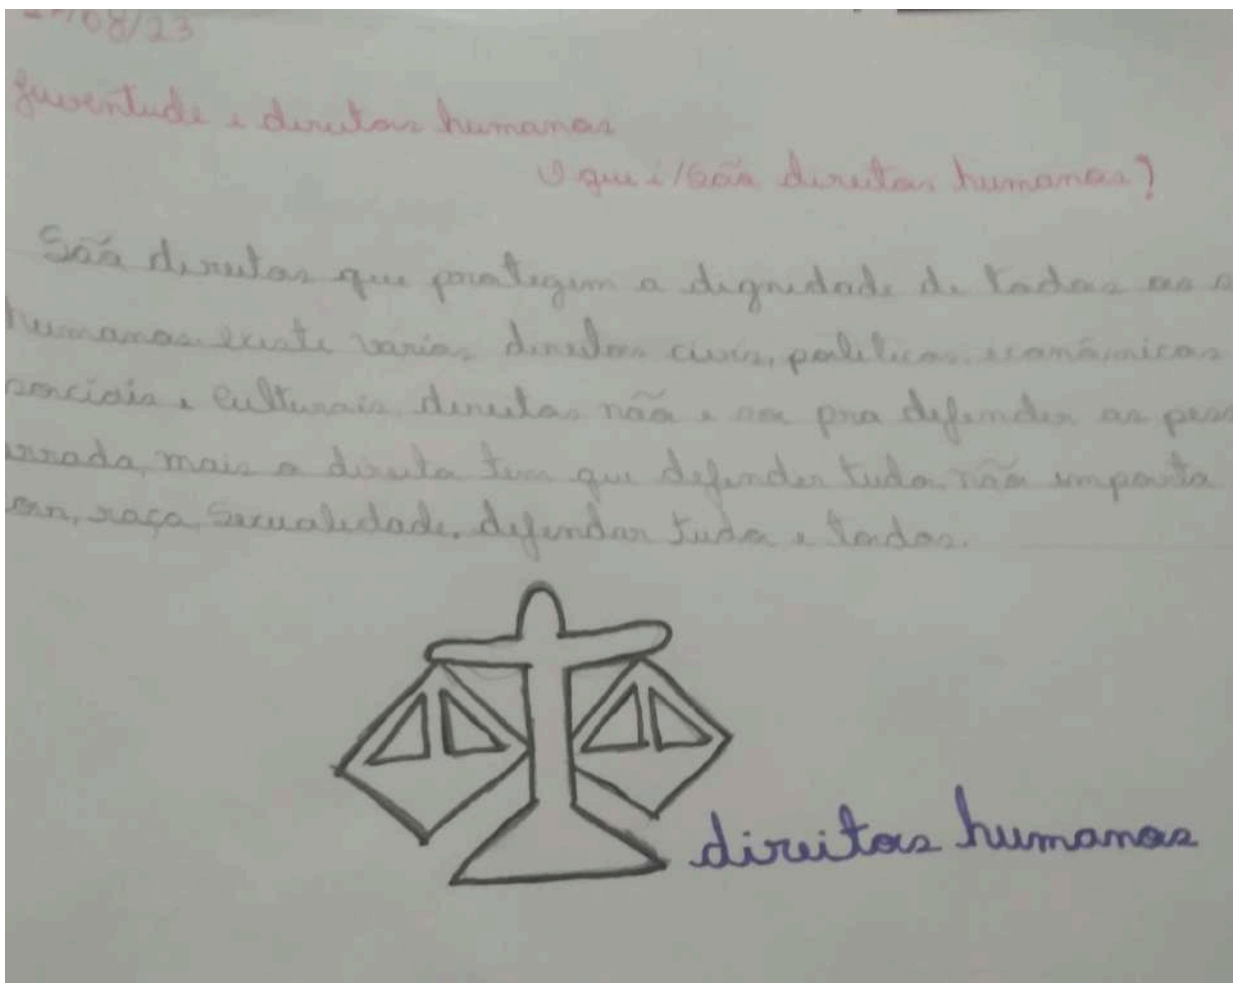 /08/23
Juventude e direitos humanos
O que é/São direitos humanos?
São direitos que protegem a dignidade de todos os
humanos existe varios direitos civis, politicos, econômicos
sociais e Culturais, direitos não e so pra defender as
errada, mais o direito tem que defender tudo, não importa
cor, raça, Sexualidade. defender tudo e todos.
direitos humanos